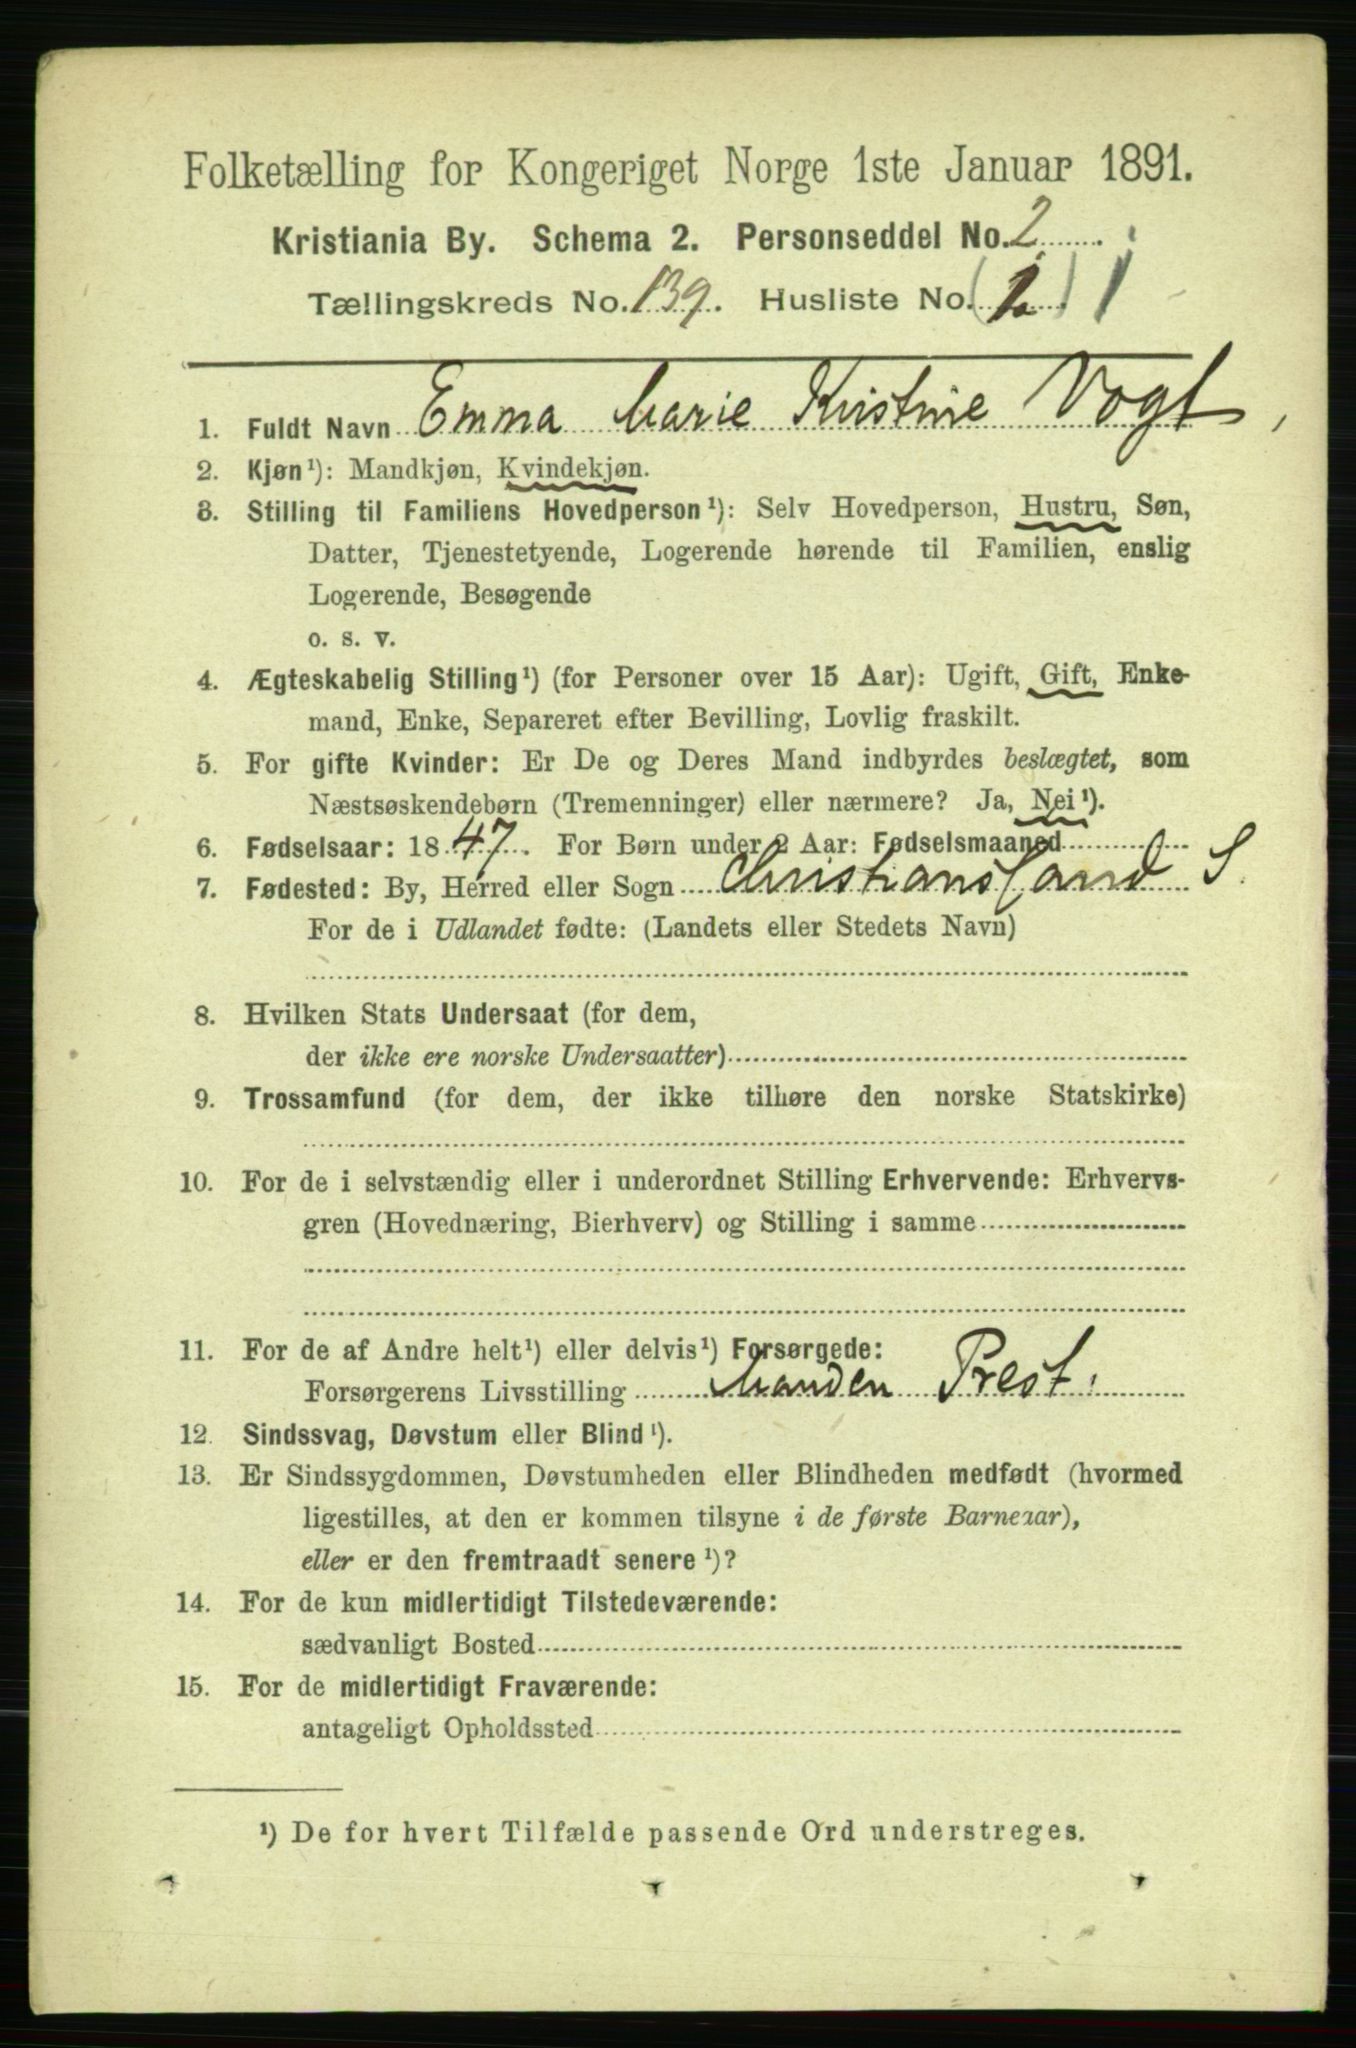 Folketælling for Kongeriget Norge 1ste Januar 1891.
Kristiania By. Schema 2. Personseddel No. 2
Tællingskreds No. 139. Husliste No. (1) 1
1. Fuldt Navn Emma Marie Kristine Vogt,
2. Kjøn¹): Mandkjøn, Kvindekjøn.
3. Stilling til Familiens Hovedperson¹): Selv Hovedperson, Hustru, Søn,
Datter, Tjenestetyende, Logerende hørende til Familien, enslig
Logerende, Besøgende
o. s. v.
4. Ægteskabelig Stilling¹) (for Personer over 15 Aar): Ugift, Gift, Enke-
mand, Enke, Separeret efter Bevilling, Lovlig fraskilt.
5. For gifte Kvinder: Er De og Deres Mand indbyrdes beslægtet, som
Næstsøskendebørn (Tremenninger) eller nærmere? Ja, Nei¹).
6. Fødselsaar: 1847. For Børn under 2 Aar: Fødselsmaaned
7. Fødested: By, Herred eller Sogn Christianssand S.
For de i Udlandet fødte: (Landets eller Stedets Navn)
8. Hvilken Stats Undersaat (for dem,
der ikke ere norske Undersaatter)
9. Trossamfund (for dem, der ikke tilhøre den norske Statskirke)
10. For de i selvstændig eller i underordnet Stilling Erhvervende: Erhvervs-
gren (Hovednæring, Bierhverv) og Stilling i samme
11. For de af Andre helt¹) eller delvis¹) Forsørgede:
Forsørgerens Livsstilling Manden Prest.
12. Sindssvag, Døvstum eller Blind¹).
13. Er Sindssygdommen, Døvstumheden eller Blindheden medfødt (hvormed
ligestilles, at den er kommen tilsyne i de første Barneaar),
eller er den fremtraadt senere¹)?
14. For de kun midlertidigt Tilstedeværende:
sædvanligt Bosted
15. For de midlertidigt Fraværende:
antageligt Opholdssted
¹) De for hvert Tilfælde passende Ord understreges.